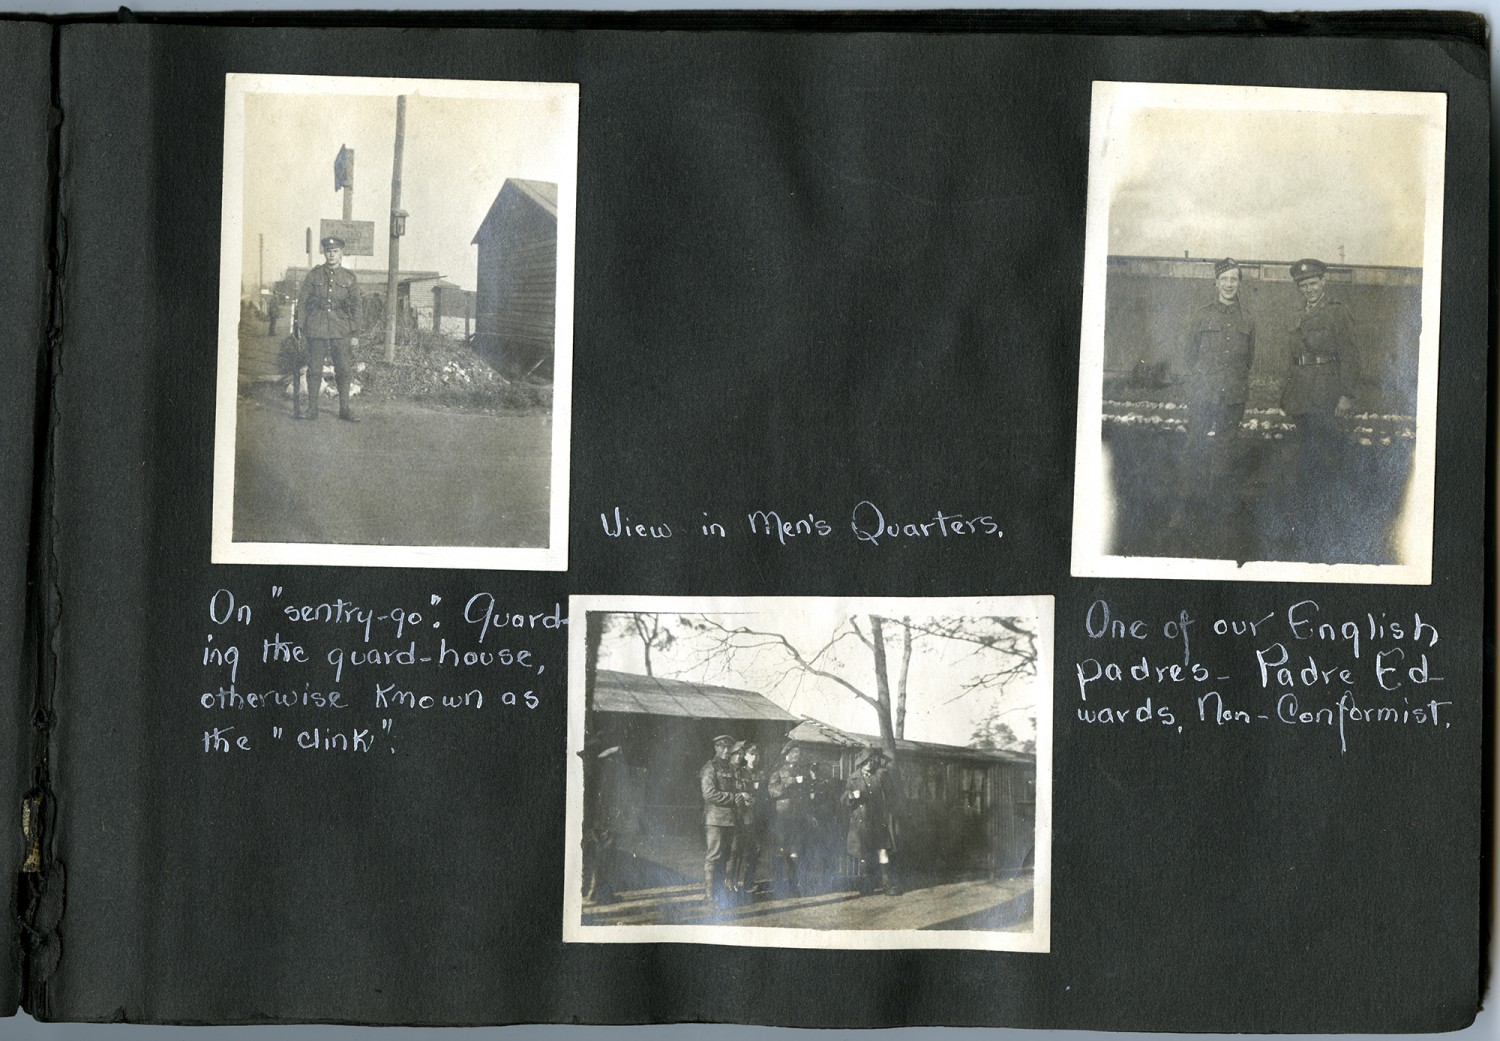 View in Men's Quarters.
On "sentry-go". Guard-
ing the guard-house,
otherwise known as
the "clink".
One of our English
padres - Padre Ed-
wards, Non-Conformist.